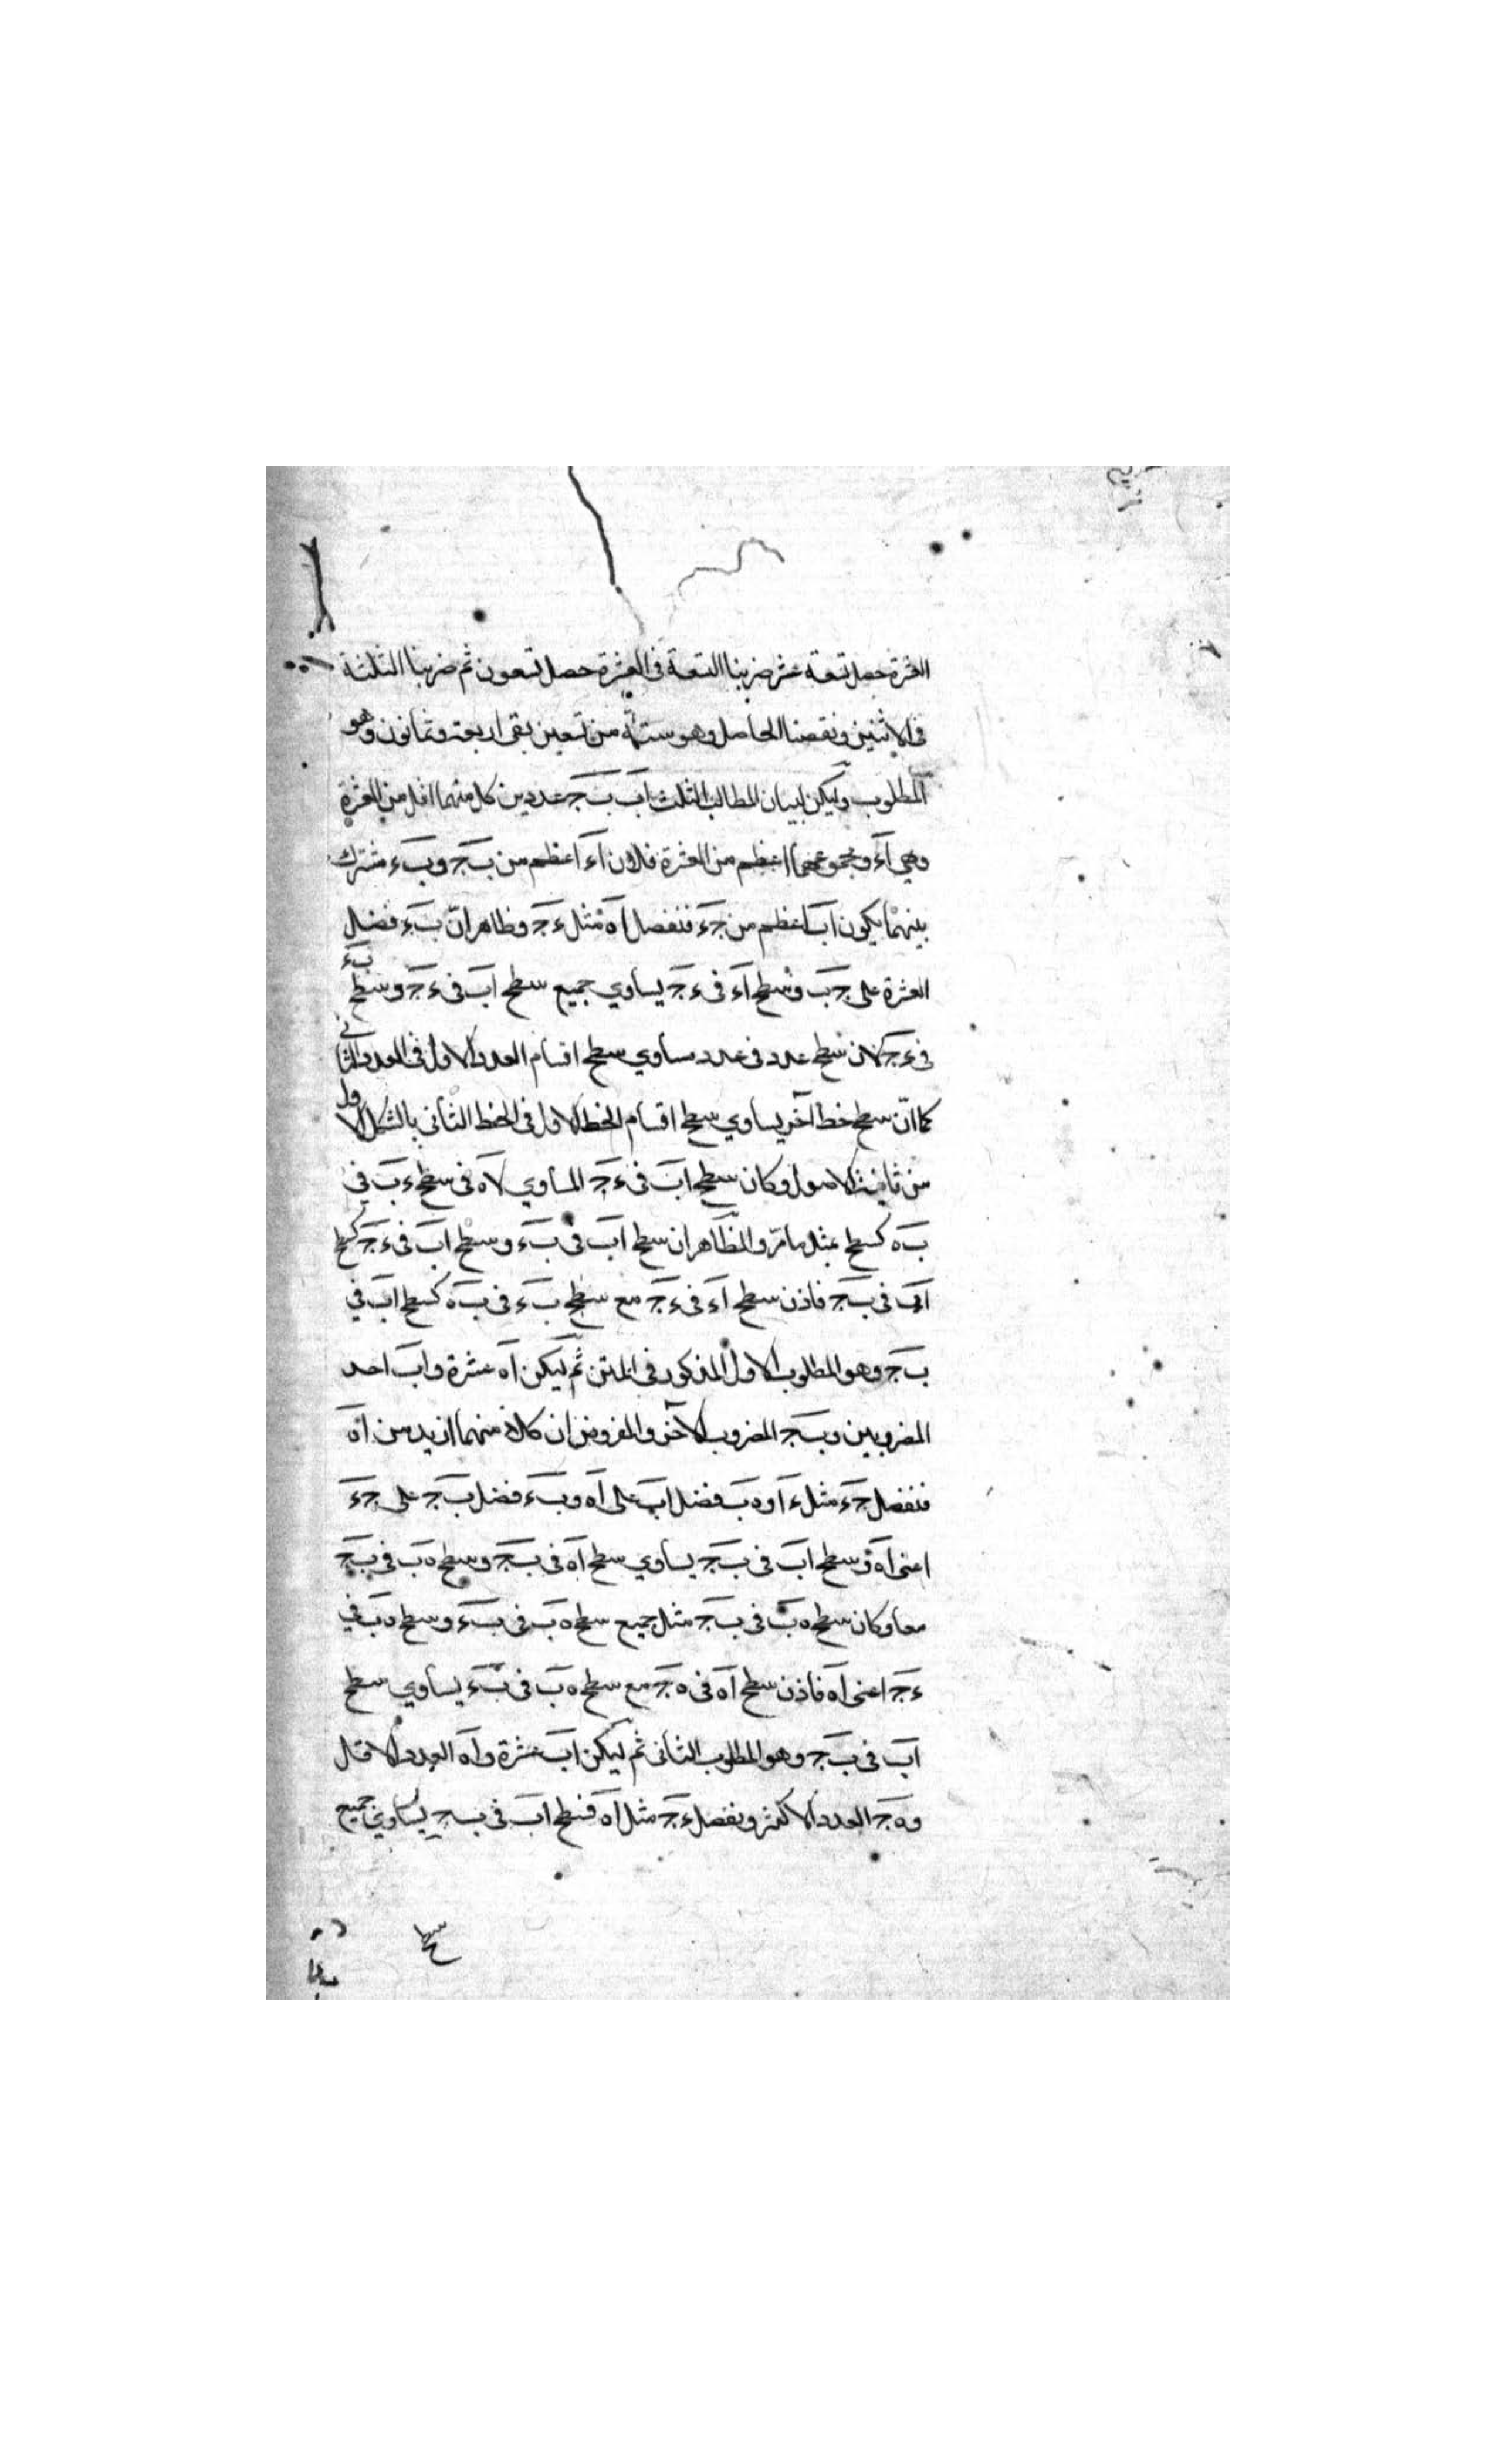 العشرة حصل تسعة عشر ضربنا التسعة فى العشرة حصل تسعون ثم ضربنا الثلثة
فى الاثنين ونقصنا الحاصل وهو ستة من تسعين بقى اربعة وثمانون وهو
المطلوب وليكن لبيان المطالب الثلث اب ب‍ج عددين كل منهما اقل من العشرة
وهى اء ومجموعهما اعظم من العشرة فلان اء اعظم من ب‍ج وب‍ء مشترك
بينهما يكون اب اعظم من ج‍ء فنفصل اه مثل ء‍ج وظاهر انّ ب‍ء فضل
العشرة على ج‍ب وسطح اء فى ء‍ج يساوي جميع سطح اب فى ء‍ج وسطح ب‍ء
فى ء‍ج لان سطح عدد فى عدد مساوي سطح اقسام العدد الاول فى العدد الثانى
كما انّ سطح خط آخر يساوي سطح اقسام الخط الاول فى الخط الثانى بالشكل الاول
من ثانية الاصول وكان سطح اب فى ء‍ج المساوي لاه فى سطح ء‍ب فى
ب‍ه كسطح بمثل ما مرّ والظاهر ان سطح اب فى ب‍ء وسطح اب فى ء‍ج كسطح
اب فى ب‍ج فاذن سطح اء فى ء‍ج مع سطح ب‍ء فى ب‍ه كسطح اب فى
ب‍ج وهو المطلوب الاول المذكور فى المتن ثم ليكن اه عشرة واب احد
المضروبين وب‍ج المضروب الآخر والمفروض ان كلا منهما ازيد من اه
فنفصل ج‍ء مثل ء‍ا وه‍ب فضل اب على اه وب‍ء فضل ب‍ج على ج‍ء
اعنى اه فسطح اب فى ب‍ج يساوي سطح اه فى ب‍ج وسطح ه‍ب فى ب‍ج
معا وكان سطح ه‍ب فى ب‍ج مثل جميع سطح ه‍ب فى ب‍ء وسطح ه‍ب فى
ء‍ج اعنى اه فاذن سطح اه فى ه‍ج مع سطح ه‍ب فى ب‍ء يساوي سطح
اب فى ب‍ج وهو المطلوب الثانى ثم ليكن اب عشرة واه العدد الاقل
وه‍ج العدد الاكثر ونفصل ء‍ج مثل اه فسطح اب فى ب‍ج يساوي جميع
سطح